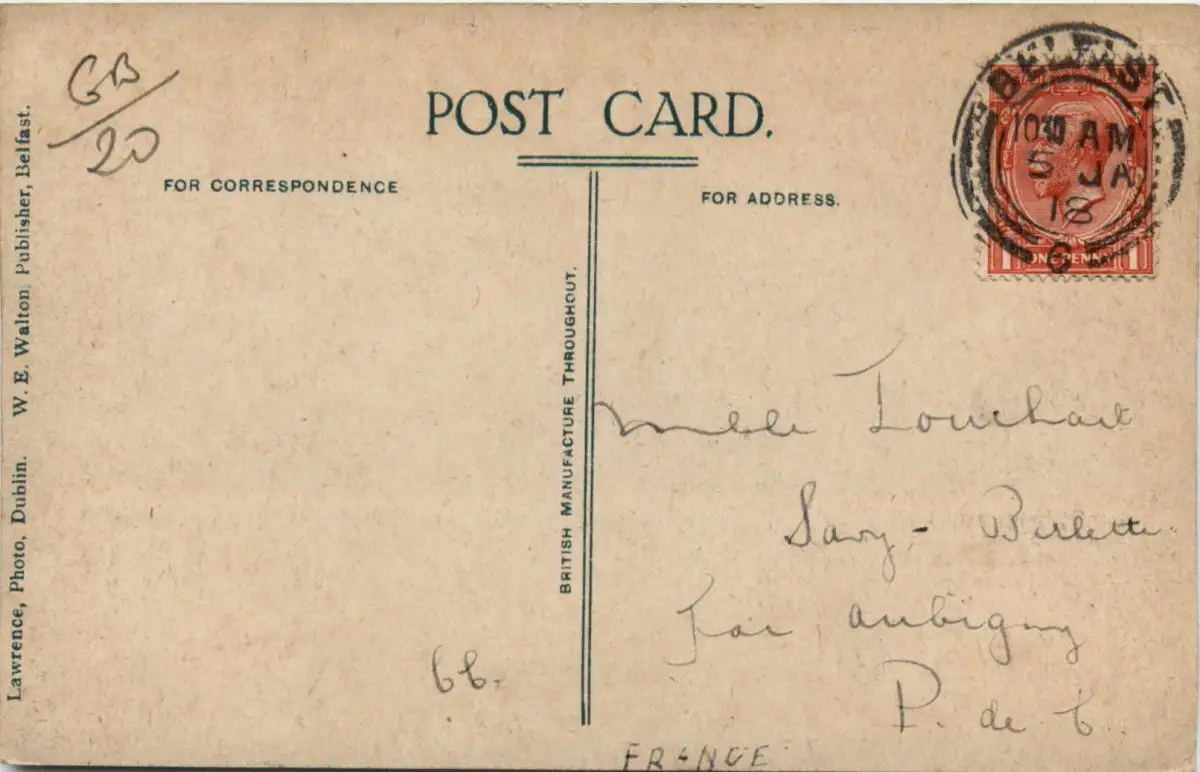 GB/20
POST CARD.
FOR CORRESPONDENCE
FOR ADDRESS.
BELFAST
1030 AM
5 JA
18
6
1 ONE PENNY 1
Lawrence, Photo, Dublin. W. E. Walton Publisher, Belfast.
BRITISH MANUFACTURE THROUGHOUT.
Melle Louchart
Savy-Berlette
Par Aubigny
P. de C
6 6.
FRANCE